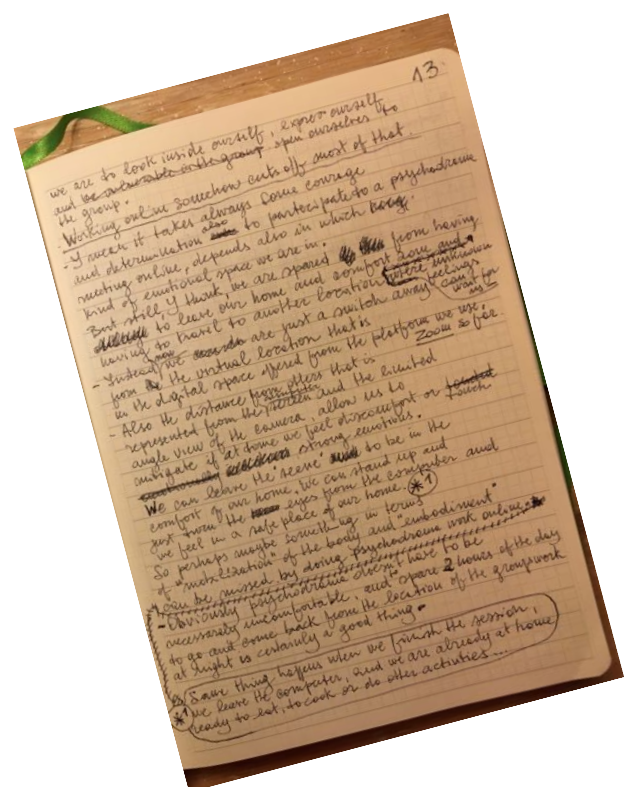 13.
we are to look inside ourself, express ourself
and be vulnerable in the group open ourselves to
the group.
Working online somehow cuts off most of that.
- I mean it takes always some courage
and determination also to partecipate to a psychodrama
meeting online, depends also in which
kind of emotional space we are in.
But still, I think, we are spared from having
to leave our home and comfort zone and
having to travel to another location where unknown feelings
can wait for us
- Instead now we are just a switch away
from the virtual location that is
in the digital space offered from the platform we use.
Zoom so far.
- Also the distance from others that is
represented from the screen and the limited
angle view of the camera, allow us to
mitigate if at home we feel discomfort or touch
strong emotions.
We can leave the "scene" to be in the
comfort of our home. We can stand up and
just turn the eyes from the computer and
we feel in a safe place of our home. *1
So perhaps maybe something in terms
of "mobilization" of the body and "embodiment"
can be missed by doing psychodrama work online.
- Obviously psychodrama doesn't have to be
necessarily uncomfortable, and "spare 2 hours of the day
to go and come back from the location of the groupwork
at night is certainly a good thing.
*1 Same thing happens when we finish the session,
we leave the computer, and we are already at home
ready to eat, to cook or do other activities...